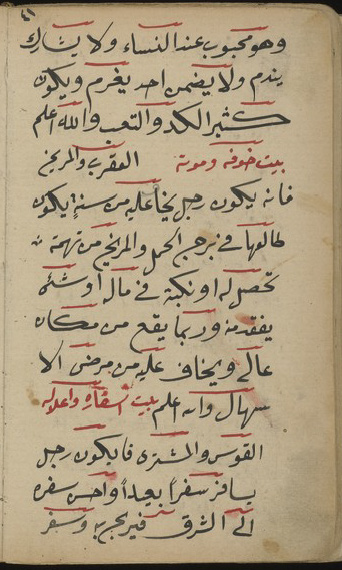 وهو محبوب عند النساء ولا يشارك
يندم ولا يضمن احد يغرم ويكون
كثير الكد والتعب والله اعلم
بيت خوفه وموته العقرب والمريخ
فانه يكون رجل يخا عليه من سنة يكون
طالعها في برج الحمل والمريخ من تهمة
تحصل له او نكبة في مال او شئ
يفقد منه وربما يقع من مكان
عالي ويخاف عليه من مرض الا
سهال والله اعلم بيت اسفاره واعلاله
القوس والمشترى فايكون رجل
يسافر سفراً بعيداً واحسن سفره
الى الشرق فيه وسفر